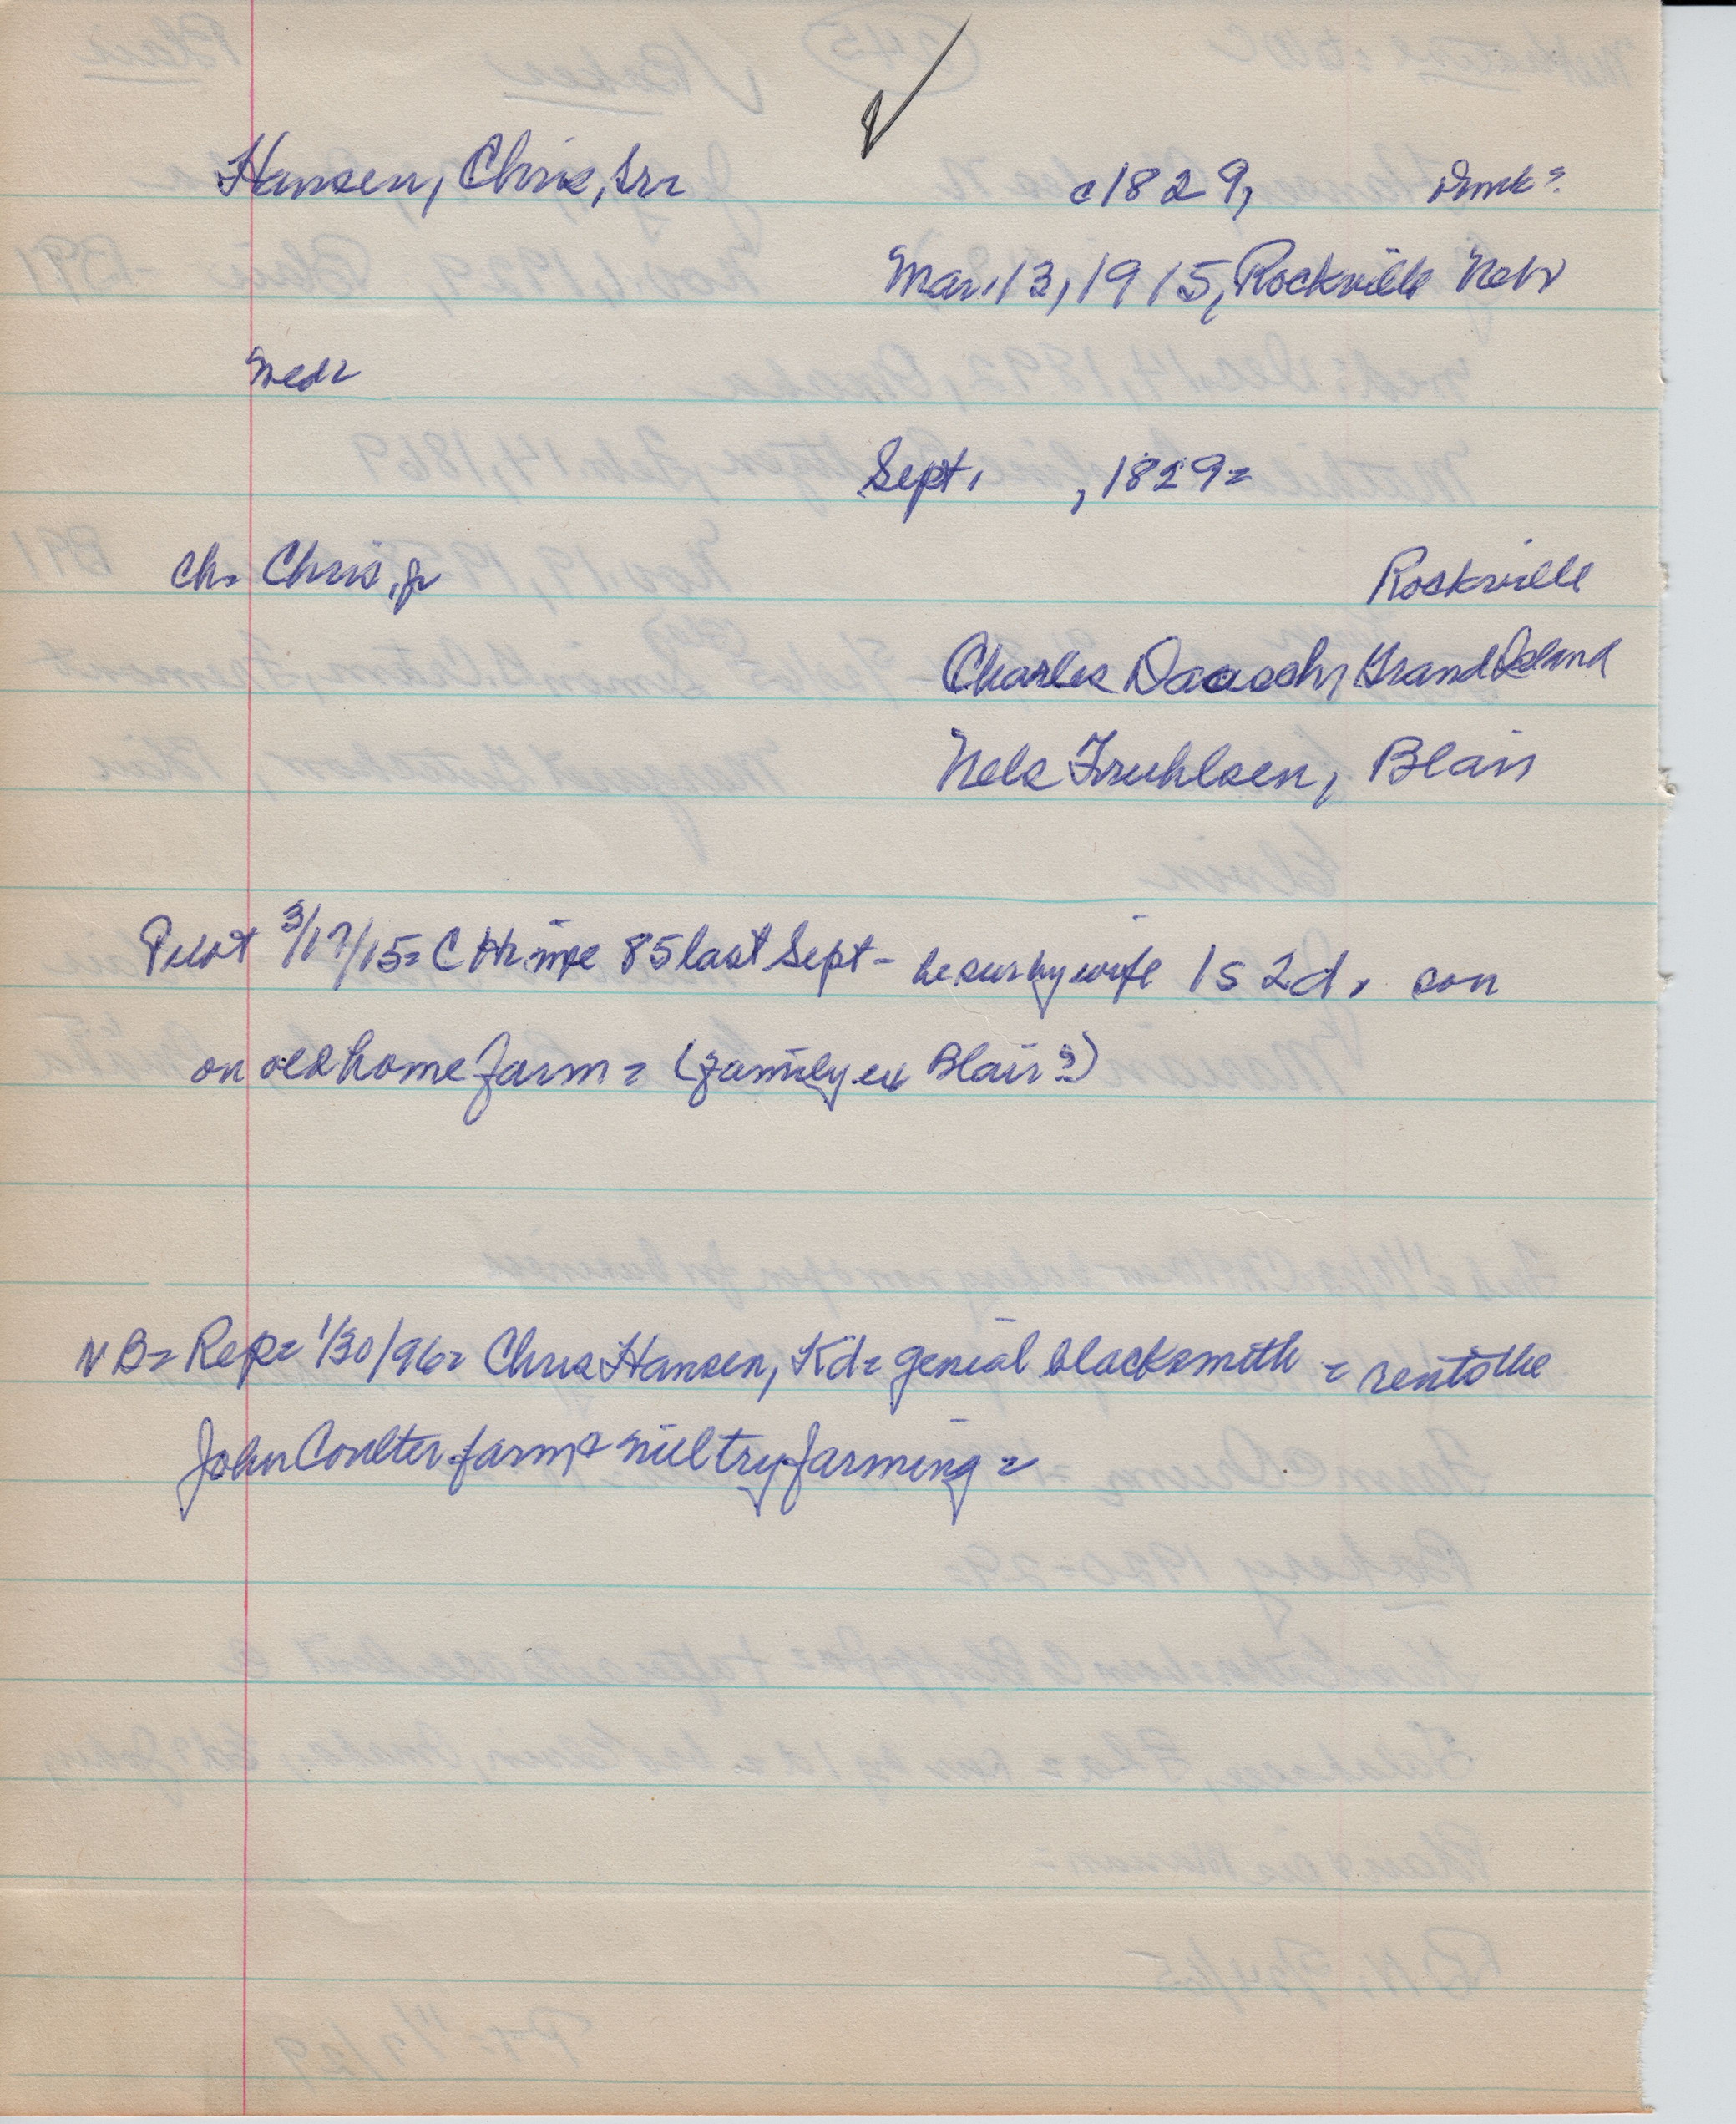 Hansen, Chris, Sr= c1829, Dmk?
Mar.13,1915, Rockville Nebr
med=
Sept. , 1829=
ch= Chris, jr Rockville
Charles Daasch, Grand Island
Nels Fruhlsen, Blair
Pilot 3/17/15= C H= 85 last Sept - he sur by wife 1s 2d, son
on old home farm = (family ex Blair?)
NB= Rep= 1/30/96= Chris Hansen, Kd= genial blacksmith = rents the
John Coulter farm= will try farming =